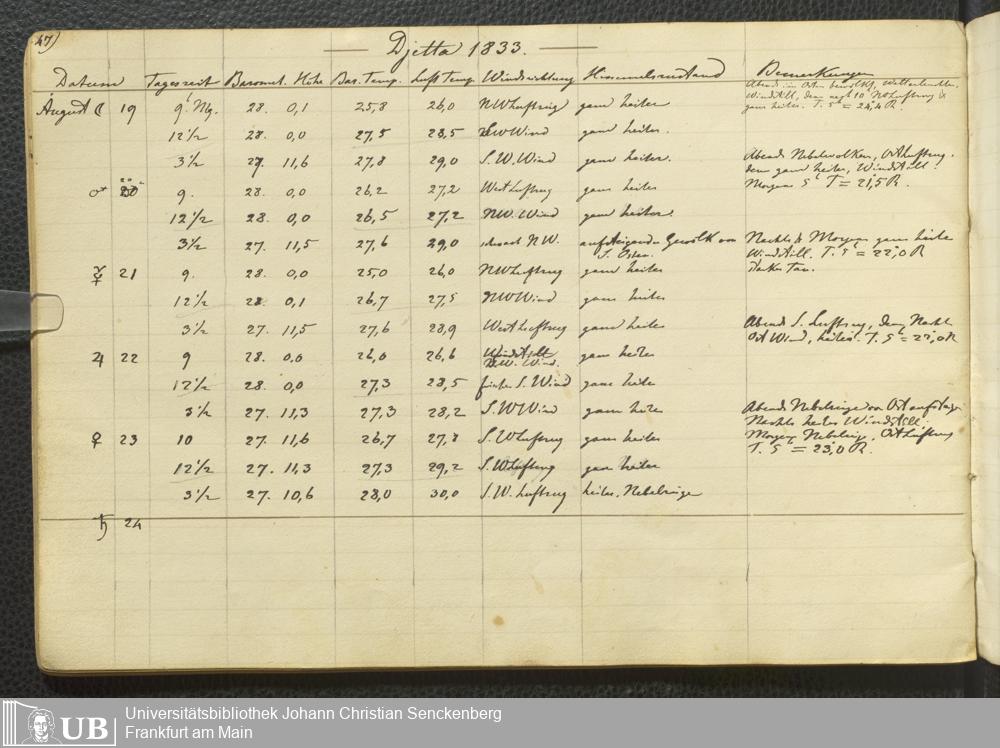 47)
Djetta 1833.
Datum Tageszeit Baromet. Höhe Bar. Temp. Luft Temp. Windrichtung Himmelszustand Bemerkungen
August ☾ 19 9 Mg. 28. 0,1 25,8 26,0 NW Luftzug ganz heiter
Abend im Osten bewölkt, Wetterleuchten,
Windstill, dann nach 10 NW Luftzug &
ganz heiter. T. 5 = 24,4 R.
12 1/2 28. 0,0 27,5 28,5 SW Wind ganz heiter.
3 1/2 27. 11,6 27,8 29,0 S.W. Wind ganz heiter.
Abends Nebelwolken, Ost Luftzug.
dann ganz heiter, Windstill.
♂ 20 9. 28. 0,0 26,2 27,2 West Luftzug ganz heiter
Morgen 5 T = 21,5 R.
12 1/2 28. 0,0 26,5 27,2 NW. Wind ganz heiter.
3 1/2 27. 11,5 27,6 29,0 schwach NW. aufsteigendes Gewölk von
S. Osten.
Nachts & Morgen ganz heiter
Windstill. T. 5 = 22,0 R
starker Tau.
☿ 21 9. 28. 0,0 25,0 26,0 NW Luftzug ganz heiter
12 1/2 28. 0,1 26,7 27,5 NW Wind ganz heiter
3 1/2 27. 11,5 27,6 28,9 West Luftzug ganz heiter
Abend S. Luftzug, dann Nachts
Ost Wind, heiter. T. 5 = 22,0 R
♃ 22 9 28. 0,0 26,0 26,6 Windstill ganz heiter
N.W. Wind.
12 1/2 28. 0,0 27,3 28,5 frischer S. Wind ganz heiter
3 1/2 27. 11,3 27,3 28,2 S.W Wind ganz heiter
Abends Nebelringe von Ost aufsteigen
Nachts heiter Windstill.
♀ 23 10 27. 11,6 26,7 27,8 S. W Luftzug ganz heiter.
Morgen Nebelring, Ost Luftzug
T. 5 = 23,0 R.
12 1/2 27. 11,3 27,3 29,2 S. W Luftzug ganz heiter
3 1/2 27. 10,6 28,0 30,0 S. W. Luftzug heiter, Nebelringe
♄ 24
UB
Universitätsbibliothek Johann Christian Senckenberg
Frankfurt am Main